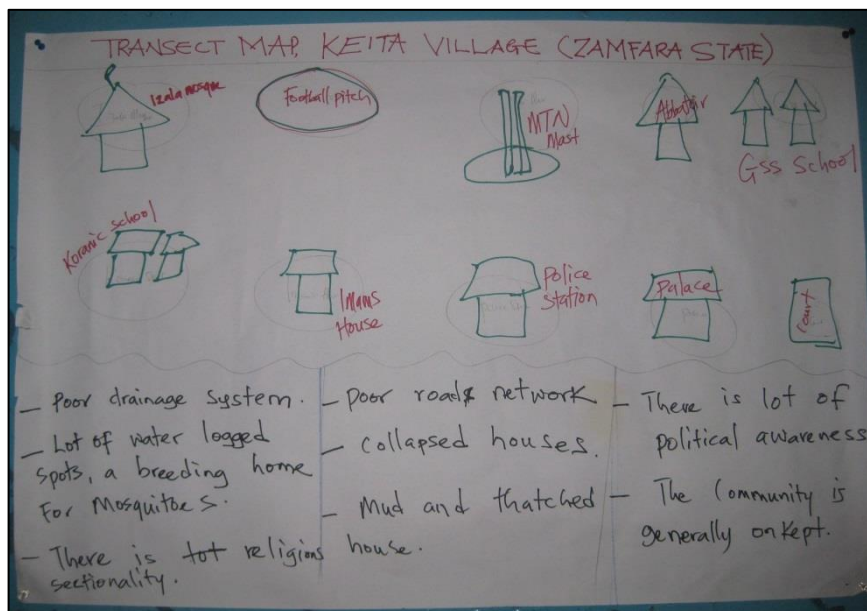 TRANSECT MAP, KEITA VILLAGE (ZAMFARA STATE)
Izala mosque
Football pitch
MTN
Mast
Abbatoir
Gss School
Koranic school
Imams
House
Police
station
Palace
Court
- Poor drainage system.
- Lot of water logged
spots, a breeding home
For Mosquitoes.
- There is lot religions
sectionality.
- Poor roads network
- Collapsed houses.
- Mud and thatched
house.
- There is lot of
political awareness
- The Community is
generally onkept.